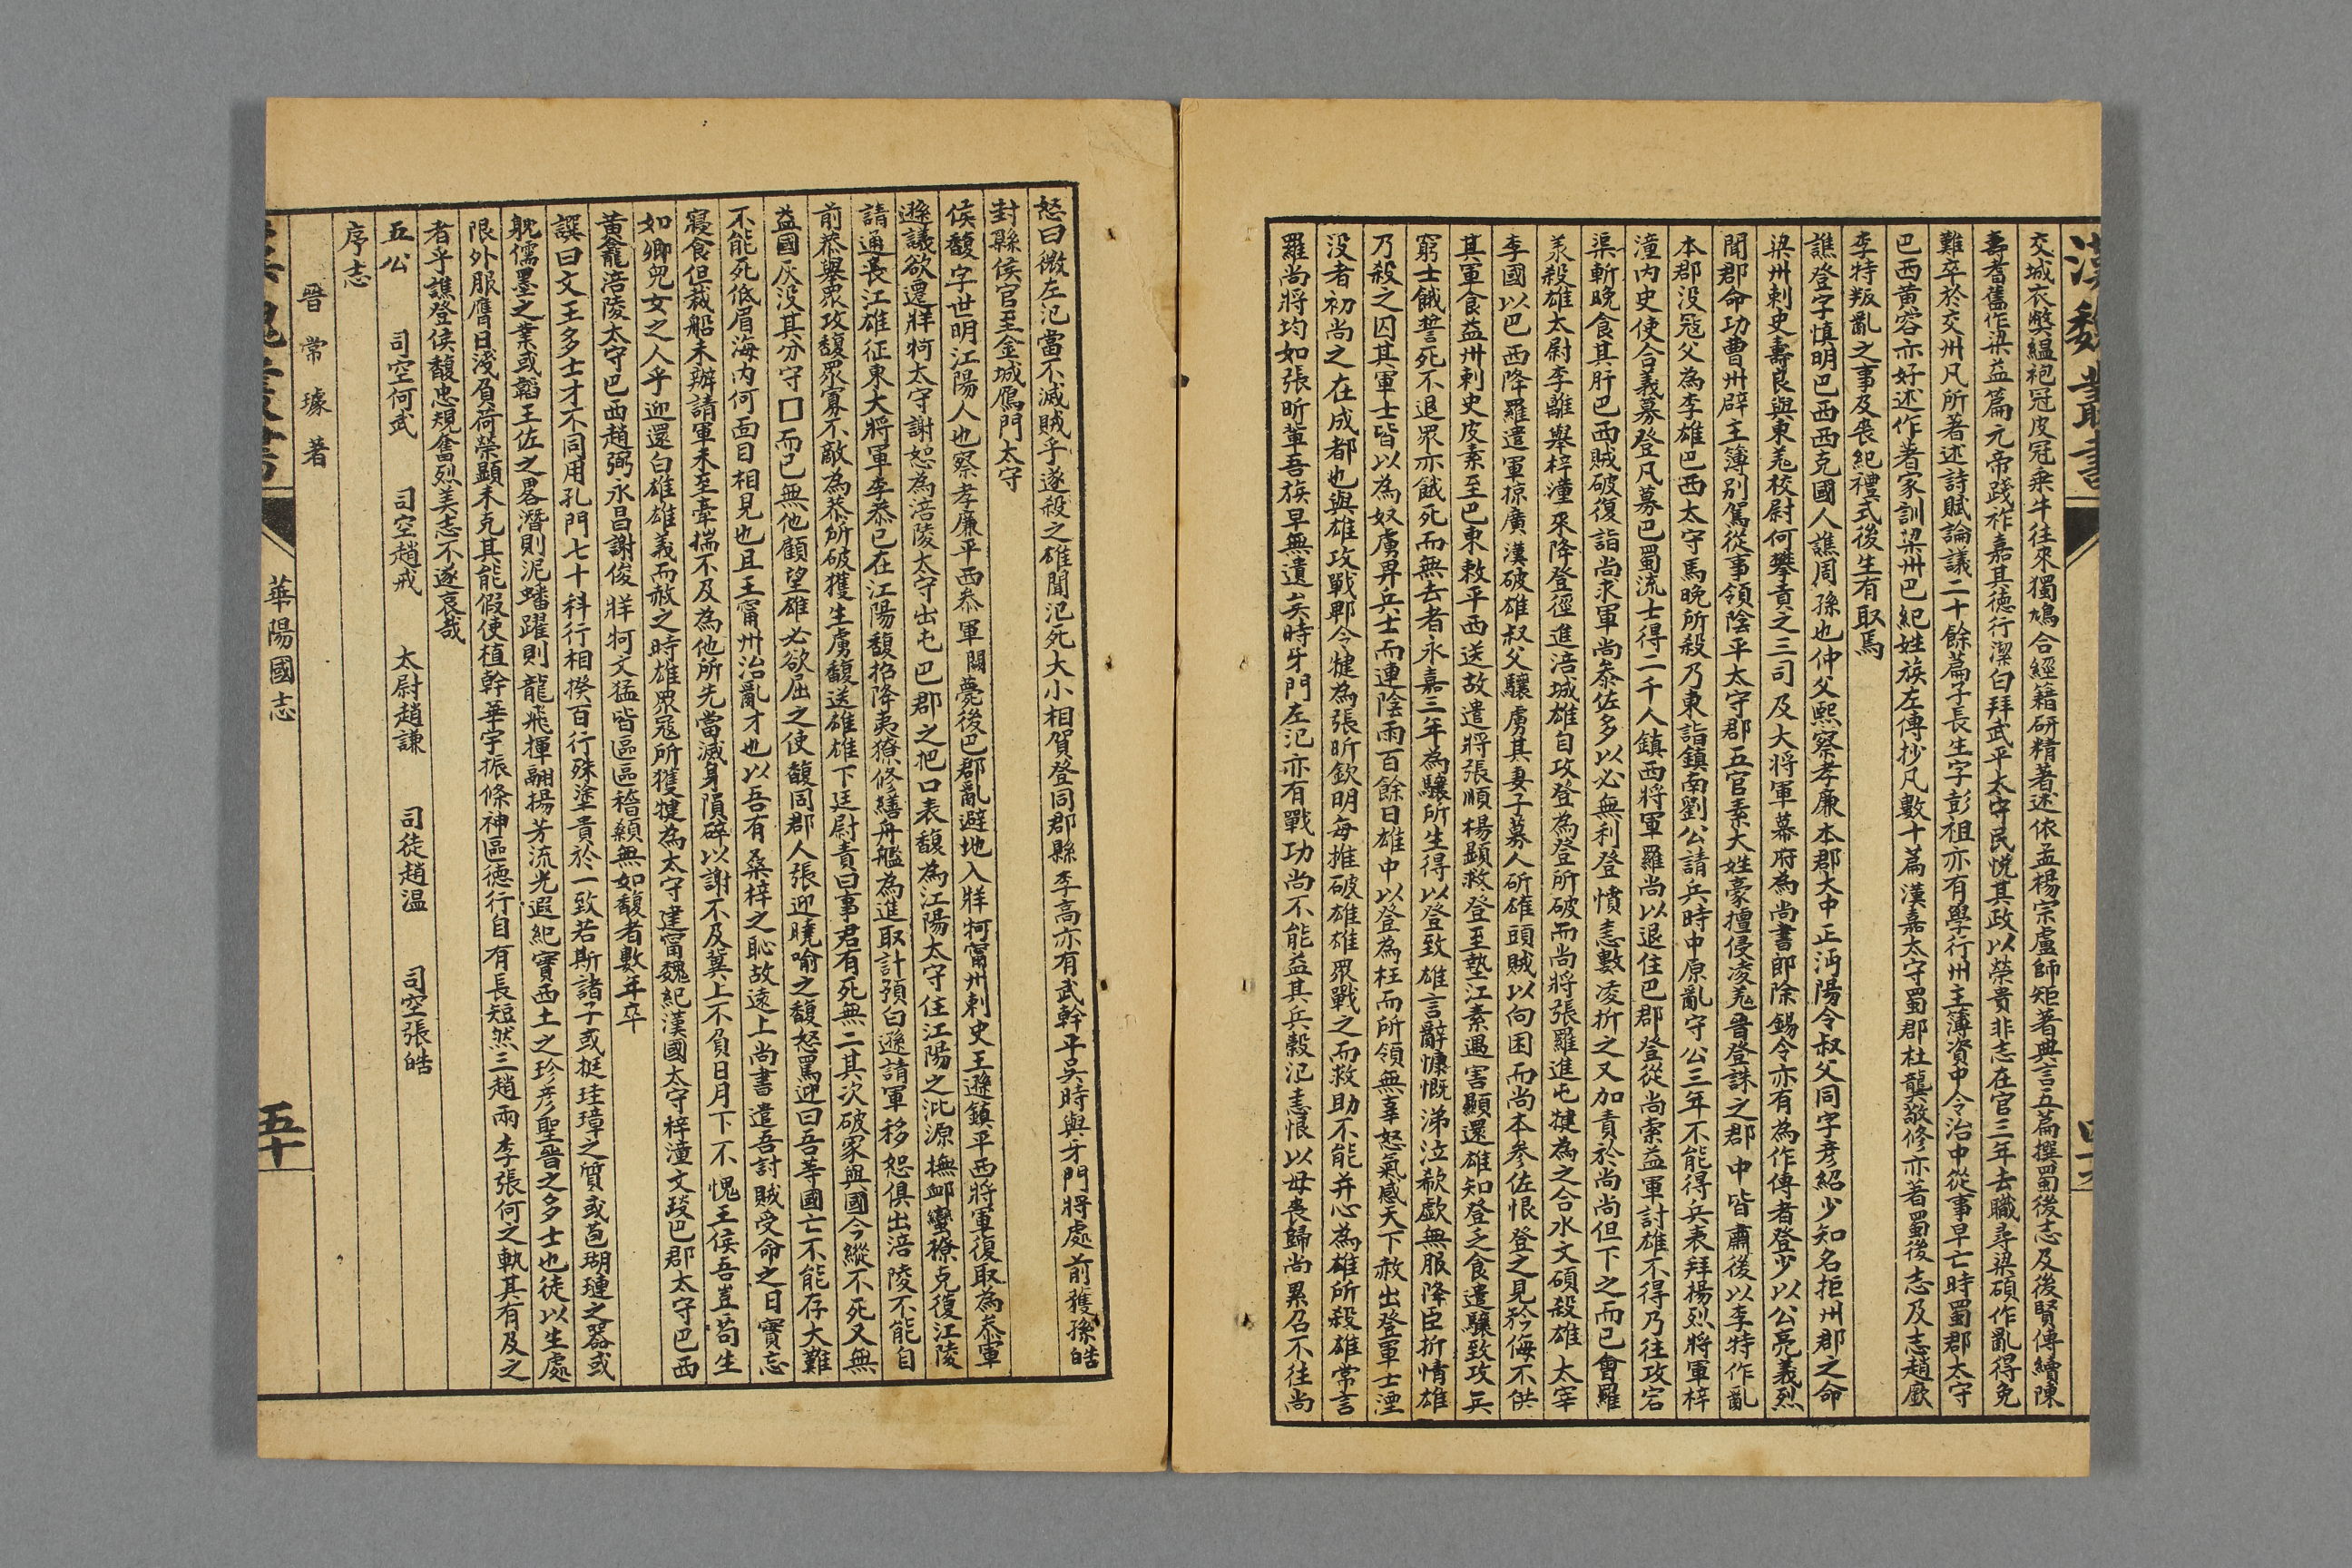 漢魏叢書
交城衣弊緼袍冠皮冠乘牛往來獨鳩合經籍研精著述依孟楊宗盧師矩著典言五篇撰蜀後志及後賢傳續陳
壽耆舊作梁益篇元帝踐祚嘉其德行潔白拜武平太守民悅其政以榮貴非志在官三年去職尋梁碩作亂得免
難卒於交州凡所著述詩賦論議二十餘篇子長生字彭祖亦有學行州主簿資中令治中從事早亡時蜀郡太守
巴西黃容亦好述作著家訓梁州巴紀姓族左傳抄凡數十篇漢嘉太守蜀郡杜龔敬修亦著蜀後志及志趙廞
李特叛亂之事及喪紀禮式後生有取焉
譙登字慎明巴西西充國人譙周孫也仲父熙察孝廉本郡大中正沔陽令叔父同字彥紹少知名拒州郡之命
梁州刺史壽良與東羌校尉何攀貢之三司及大將軍幕府為尚書郎除錫令亦有為作傳者登少以公亮義烈
聞郡命功曹州辟主簿別駕從事領陰平太守郡五官素大姓豪擅侵凌羌晉登誅之郡中皆肅後以李特作亂
本郡没寇父為李雄巴西太守馬晚所殺乃東詣鎮南劉公請兵時中原亂守公三年不能得兵表拜揚烈將軍梓
潼內史使合義募登凡募巴蜀流士得二千人鎮西將軍羅尚以退住巴郡登從尚索益軍討雄不得乃往攻宕
渠斬晚食其肝巴西賊破復詣尚求軍尚叅佐多以必無利登憤恚數凌折之又加責於尚尚但下之而已會羅
羕殺雄太尉李離舉梓潼來降登徑進涪城雄自攻登為登所破而尚將張羅進屯犍為之合水文碩殺雄太宰
李國以巴西降羅遣軍掠廣漢破雄叔父驤虜其妻子募人斫雄頭賊以向困而尚本参佐恨登之見矜侮不供
其軍食益州刺史皮素至巴東敕平西送故遣將張順楊顯救登至墊江素遇害顯還雄知登乏食遣驤致攻兵
窮士餓誓死不退眾亦餓死而無去者永嘉三年為驤所生得以登致雄言辭慷慨涕泣欷歔無服降臣折情雄
乃殺之囚其軍士皆以為奴虜畀兵士而連陰雨百餘日雄中以登為枉而所領無辜怒氣感天下赦出登軍士湮
没者初尚之在成都也與雄攻戰郫令犍為張昕欽明每摧破雄雄眾戰之而救助不能并心為雄所殺雄常言
羅尚將均如張昕軰吾族早無遺矣時牙門左氾亦有戰功尚不能益其兵穀氾恚恨以母喪歸尚累召不往尚
怒曰微左氾當不滅賊乎遂殺之雄聞氾死大小相賀登同郡縣李高亦有武幹平吳時與牙門將處前獲孫皓
封縣侯官至金城鴈門太守
侯馥字世明江陽人也察孝廉平西叅軍閬薨後巴郡亂避地入牂牁甯州刺史王遜鎮平西將軍復取為叅軍
遜議欲遷牂牁太守謝恕為涪陵太守出屯巴郡之把口表馥為江陽太守住江陽之沘源撫䘏蠻獠克復江陵
請通長江雄征東大將軍李恭已在江陽馥招降夷獠修繕舟艦為進取計預白遜請軍移恕俱出涪陵不能自
前恭舉眾攻馥眾寡不敵為恭所破獲生虜馥送雄雄下廷尉責曰事君有死無二其次破家與國今縱不死又無
益國灰没其分守□而已無他顧望雄必欲屈之使馥同郡人張迎曉喻之馥怒罵迎曰吾等國亡不能存大難
不能死低眉海內何面目相見也且王甯州治亂才也以吾有桑梓之恥故遠上尚書遣吾討賊受命之日實忘
寢食但裁船未辦請軍未至牽揣不及為他所先當滅身隕碎以謝不及冀上不負日月下不愧王侯吾豈苟生
如卿兒女之人乎迎還白雄雄義而赦之時雄眾寇所獲犍為太守建甯魏紀漢國太守梓潼文琰巴郡太守巴西
黃龕涪陵太守巴西趙弼永昌謝俊牂牁文猛皆區區稽顙無如馥者數年卒
譔曰文王多士才不同用孔門七十科行相揆百行殊塗貴於一致若斯諸子或挺珪璋之質或苞瑚璉之器或
躭儒墨之業或韜王佐之畧潛則泥蟠躍則龍飛揮翮揚芳流光遐紀實西土之珍彥聖晉之多士也徒以生處
限外服膺日淺負荷榮顯未克其能假使植幹華宇振條神區德行自有長短然三趙兩李張何之軌其有及之
者乎譙登侯馥忠規奮烈美志不遂哀哉
五公　司空何武　司空趙戒　太尉趙謙　司徒趙温　司空張皓
序志
晉　常　璩　著
華陽國志　五十